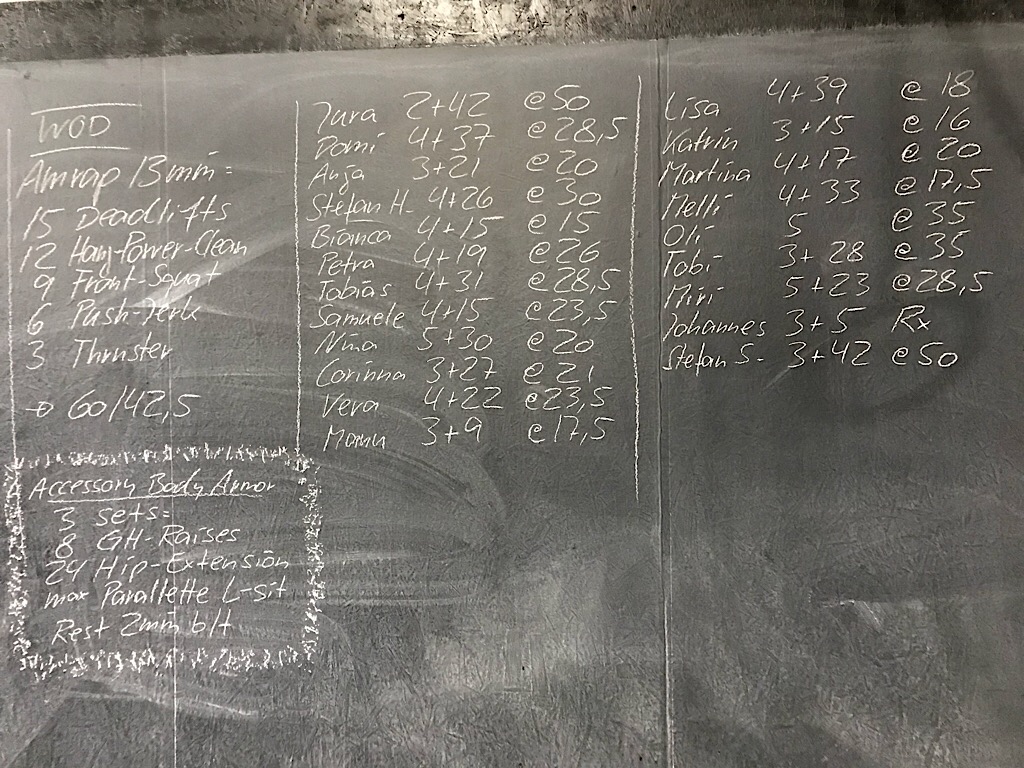 WOD
Amrap 13min:
15 Deadlifts
12 Hang-Power-Clean
9 Front-Squat
6 Push-Jerk
3 Thruster
→ 60/42,5
Accessory Body Armor
3 sets:
8 GH-Raises
24 Hip-Extension
max Parallette L-sit
Rest 2min b/t
Jura 2+42 @50
Domi 4+37 @28,5
Anja 3+21 @20
Stefan H. 4+26 @30
Bianca 4+15 @15
Petra 4+19 @26
Tobias 4+31 @28,5
Samuele 4+15 @23,5
Nina 5+30 @20
Corinna 3+27 @21
Vera 4+22 @23,5
Manu 3+9 @17,5
Lisa 4+39 @18
Katrin 3+15 @16
Martina 4+17 @20
Melli 4+33 @17,5
Oli 5 @35
Tobi 3+28 @35
Miri 5+23 @28,5
Johannes 3+5 Rx
Stefan S. 3+42 @50